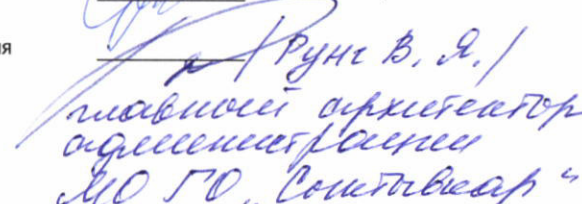 ия
/Рунг В. Я./
главный архитектор
администрации
МО ГО „Сыктывкар"